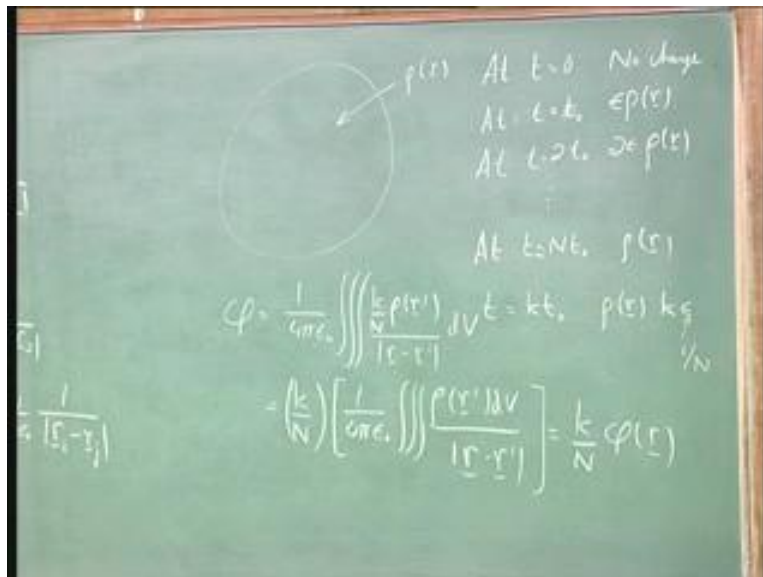 ρ(r) At t=0 No change
At t=t₀ ερ(r)
At t=2t₀ 2ερ(r)
⋮
At t=Nt₀ ρ(r)
φ = 1/4πε₀ ∭ k/N ρ(r')/|r-r'| dV t = kt₀ ρ(r) kε
1/N
= (k/N) [1/4πε₀ ∭ ρ(r')dV/|r-r'|] = k/N φ(r)
1/|r_i-r_j|